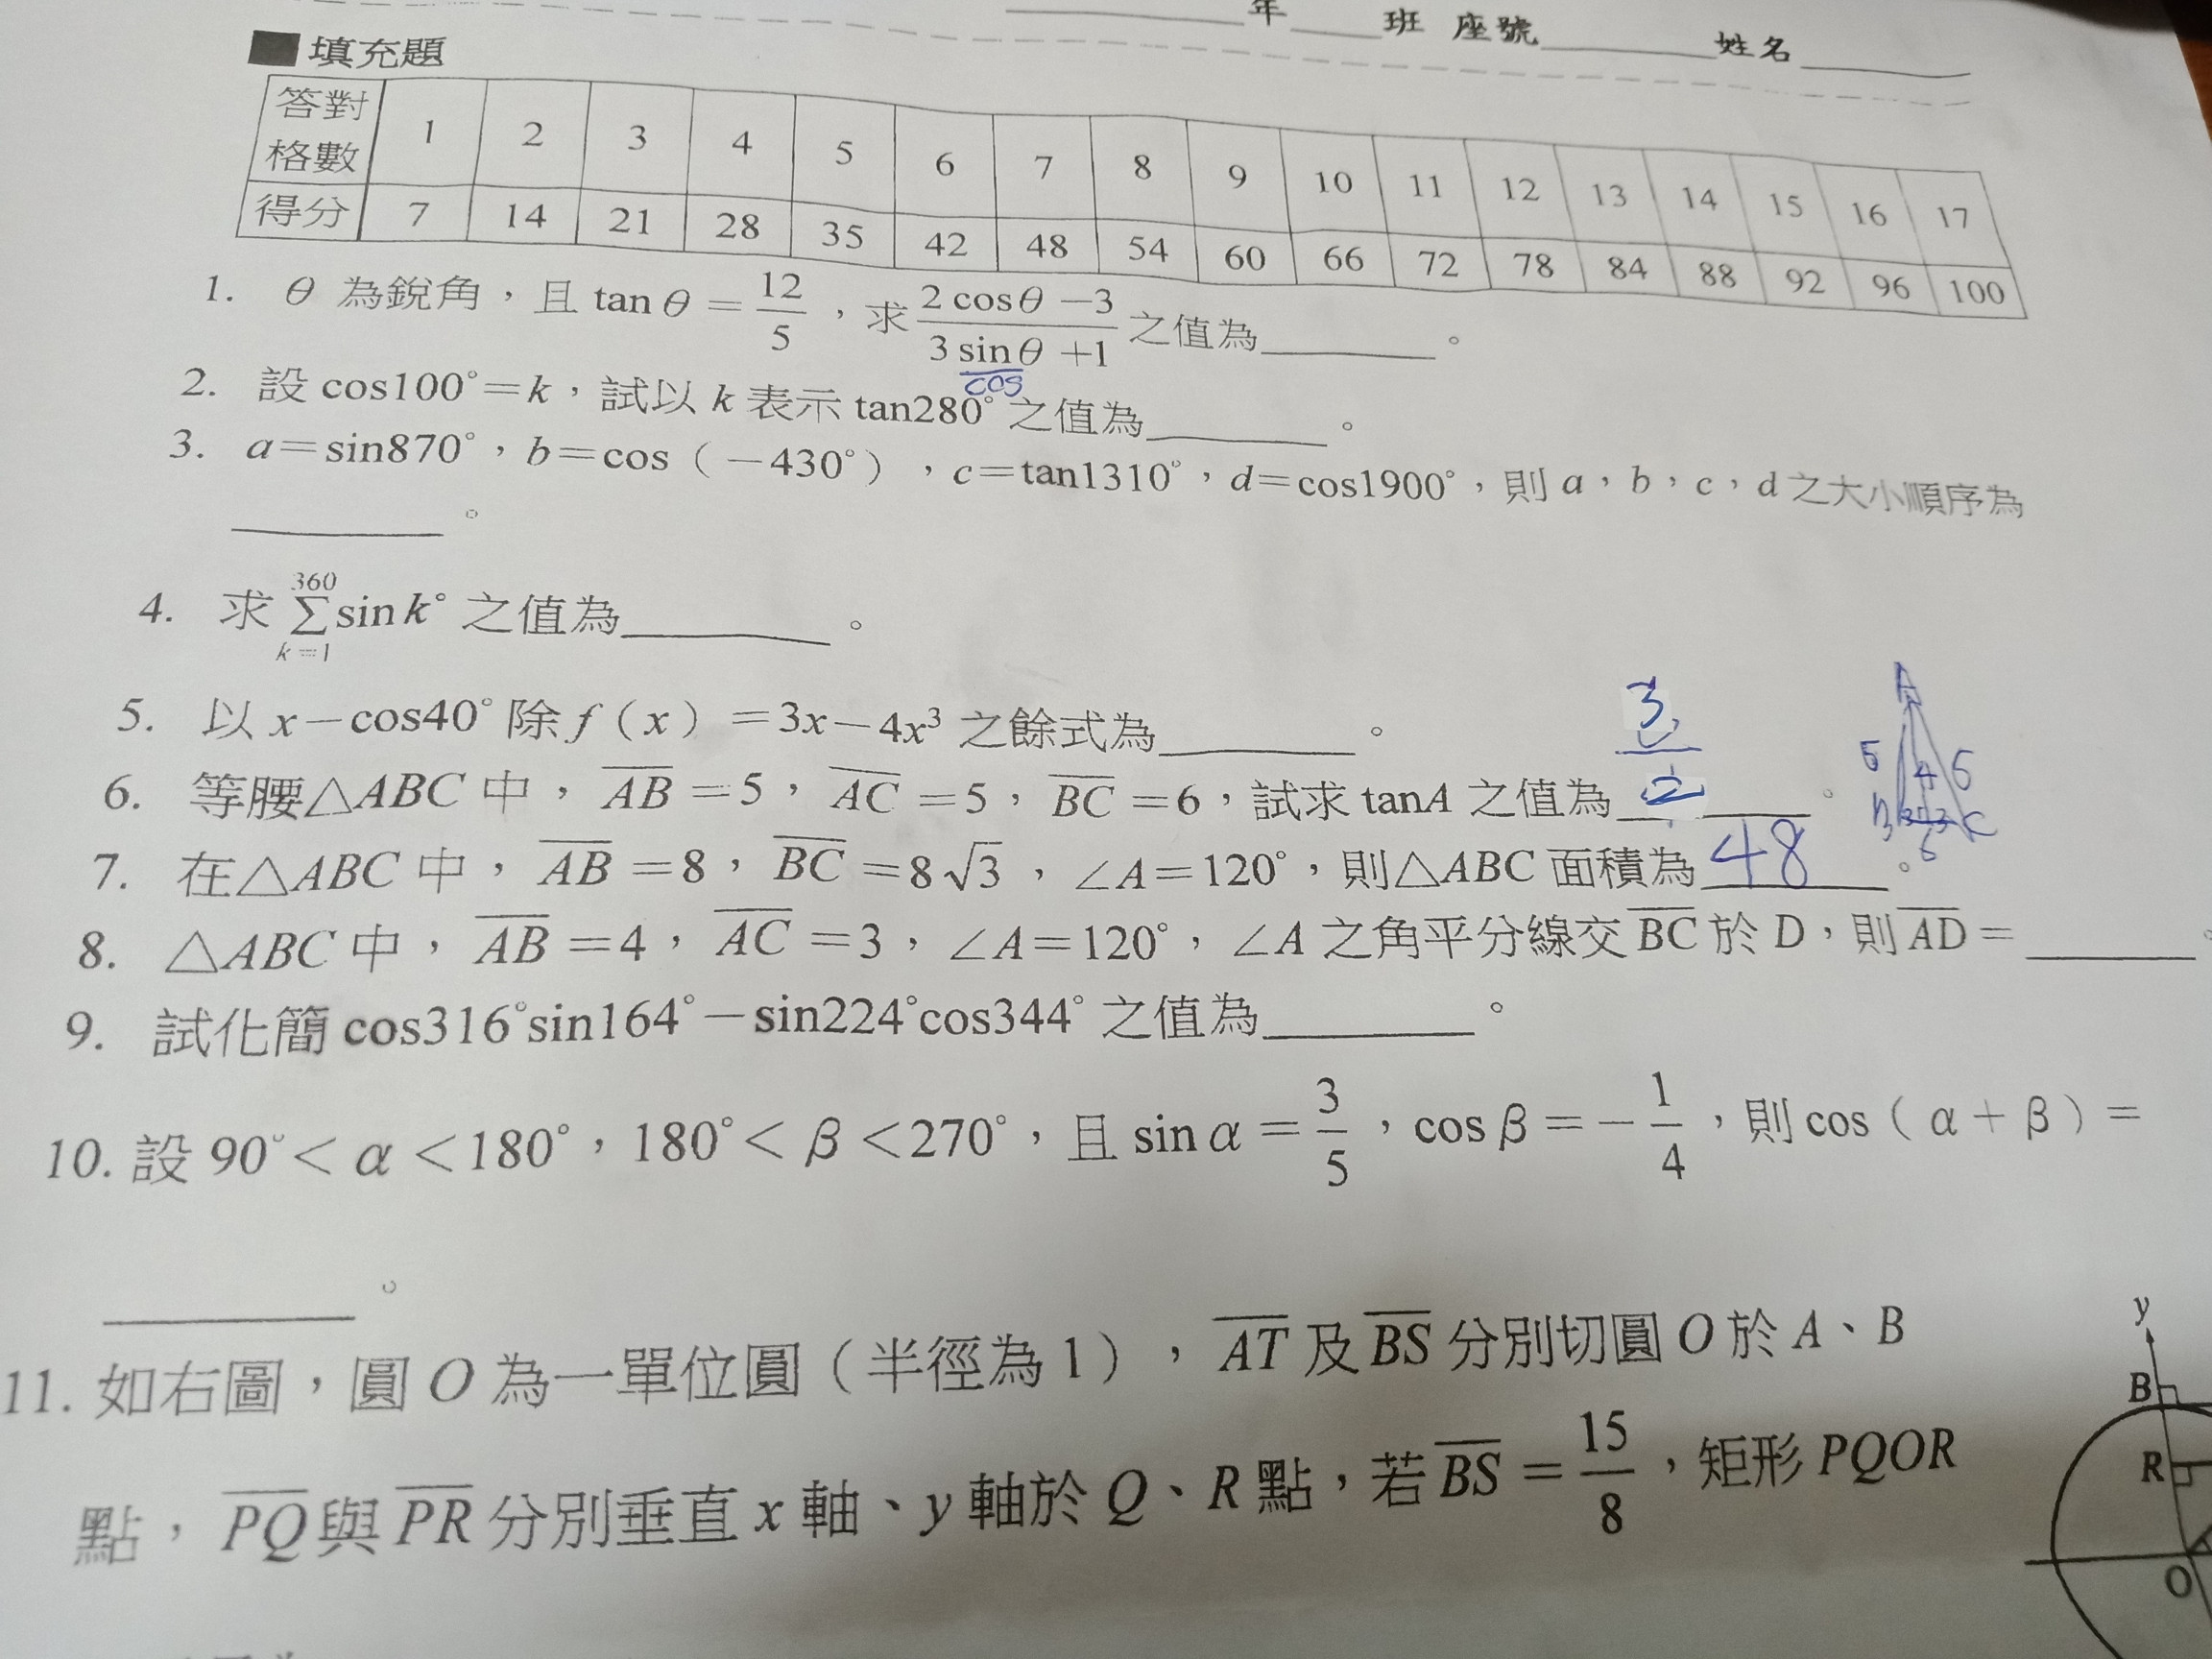 年 班 座號 姓名
■填充題
答對格數 1 2 3 4 5 6 7 8 9 10 11 12 13 14 15 16 17
得分 7 14 21 28 35 42 48 54 60 66 72 78 84 88 92 96 100
1. θ 為銳角，且 tan θ = 12/5，求 (2 cosθ −3)/(3 sinθ +1) 之值為________。
cos
2. 設 cos100°=k，試以 k 表示 tan280° 之值為________。
3. a=sin870°，b=cos（−430°），c=tan1310°，d=cos1900°，則 a，b，c，d 之大小順序為
________。
4. 求 Σ_{k=1}^{360} sin k° 之值為________。
5. 以 x−cos40° 除 f（x）=3x−4x³ 之餘式為________。
6. 等腰△ABC 中，AB=5，AC=5，BC=6，試求 tanA 之值為 3/2 。
A
5 4 5
B 3 3 C
6
7. 在△ABC 中，AB=8，BC=8√3，∠A=120°，則△ABC 面積為 48 。
8. △ABC 中，AB=4，AC=3，∠A=120°，∠A 之角平分線交 BC 於 D，則 AD=________。
9. 試化簡 cos316°sin164°−sin224°cos344° 之值為________。
10. 設 90°< α <180°，180°< β <270°，且 sin α = 3/5，cos β = −1/4，則 cos（α + β）=
________。
11. 如右圖，圓 O 為一單位圓（半徑為 1），AT 及 BS 分別切圓 O 於 A、B
點，PQ 與 PR 分別垂直 x 軸、y 軸於 Q、R 點，若 BS = 15/8，矩形 PQOR
y
B
R
O